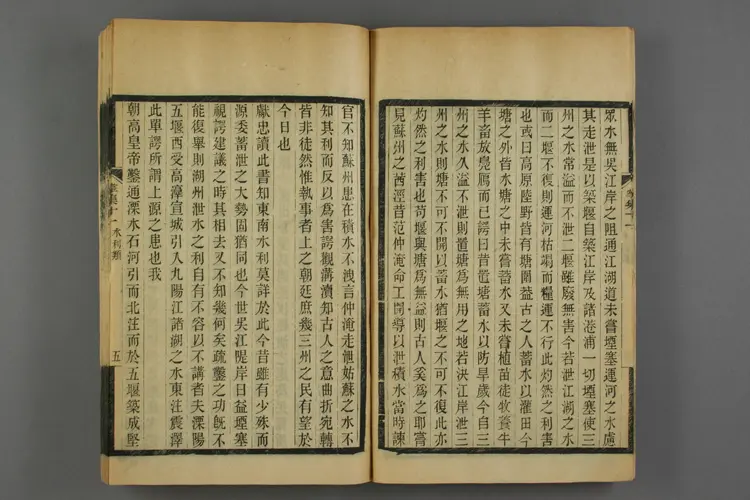 眾水無吳江岸之阻通江湖道未嘗堙塞運河之水慮
其走泄是以築堰自築江岸及諸港浦一切堙塞使三
州之水常溢而不泄二堰雖廢無害今若泄江湖之水
而二堰不復則運河枯竭而糧運不行此灼然之利害
也或曰高原陸野皆有塘圍益古之人蓄水以灌田今
塘之外皆水塘之中未嘗蓄水又未嘗植苗徒牧養牛
羊畜放鳧鴈而已諤曰昔置塘蓄水以防旱歲今自三
州之水久溢不泄則置塘爲無用之地若決江岸泄三
州之水則塘不可不開以蓄水猶堰之不可不復此亦
灼然之利害也苟堰與塘爲無益則古人奚爲之耶嘗
見蘇州之茜涇昔范仲淹命工開導以泄積水當時諫
官不知蘇州患在積水不洩言仲淹走泄姑蘇之水不
知其利而反以爲害諤觀溝瀆知古人之意曲折宛轉
皆非徒然惟執事者上之朝廷庶幾三州之民有望於
今日也
獻忠讀此書知東南水利莫詳於此今昔雖有少殊而
源委蓄泄之大勢固猶同也今世吳江隄岸日益堙塞
視諤建議之時其相去又不知幾何矣疏鑿之功旣不
能復舉則湖州泄水之利自有不容以不講者夫溧陽
五堰西受高淳宣城引入九陽江諸湖之水東注震澤
此單諤所謂上源之患也我
朝高皇帝鑿通溧水石河引而北注而於五堰築成堅
水利類
五